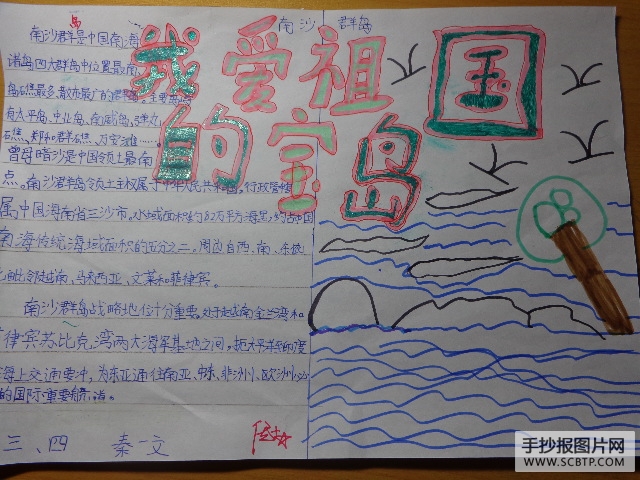 我爱祖国
的宝岛
南沙 群岛
岛
南沙群岛是中国南海
诸岛四大群岛中位置最南、
岛礁最多、散布最广的群岛。主要
有太平岛、中业岛、南威岛、弹丸
礁、郑和群礁、万安滩……。
曾母暗沙是中国领土最南
点。南沙群岛领土主权属于中华人民共和国，行政管辖
属中国海南省三沙市。水域面积约82万平方海里，约占中国
南海传统海域面积的五分之二。周边自西、南、东依
次毗邻越南、马来西亚、文莱和菲律宾。
南沙群岛战略地位十分重要。处于越南金兰湾和
律宾苏比克湾两大海军基地之间，扼太平洋至印度
海上交通要冲，为东亚通往南亚、中东、非洲、欧洲必
的国际重要航道。
三、四 秦一文
手抄报图片网
WWW.SCBTP.COM